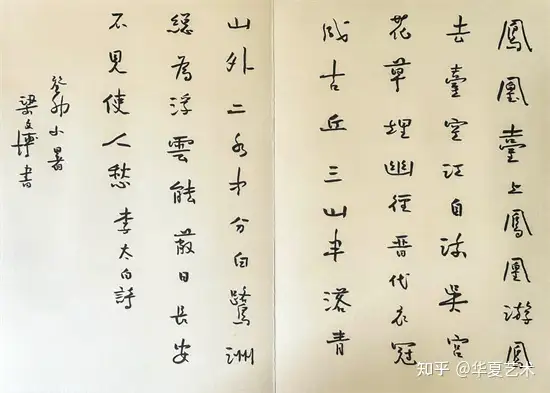 鳳凰臺上鳳凰游鳳
去臺空江自流吳宮
花草埋幽徑晉代衣冠
成古丘三山半落青
山外二水中分白鷺洲
總為浮雲能蔽日長安
不見使人愁 李太白詩
癸卯小暑
梁文博書
知乎 @华夏艺术